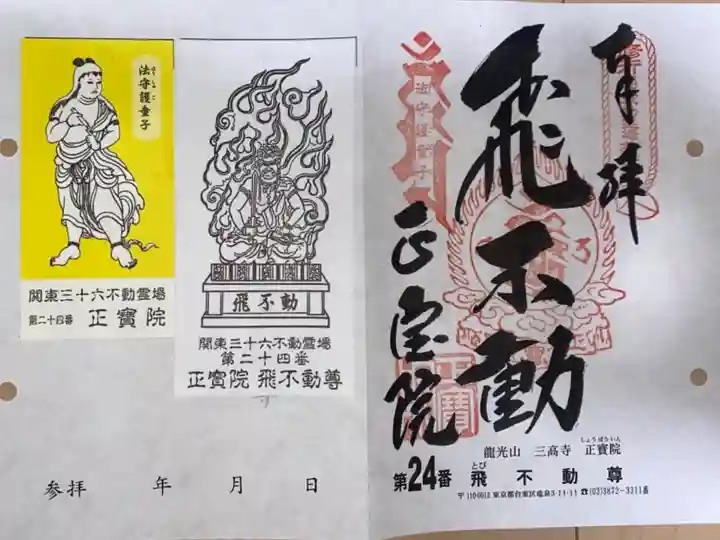 ほうしゅご
法守護童子
関東三十六不動霊場
第二十四番 正寳院
飛不動
関東三十六不動霊場
第二十四番
正寳院 飛不動尊
参拝 年 月 日
奉拝
飛不動
正宝院
法守護童子
龍光山 三高寺 正寳院
しょうぼういん
第24番 飛不動尊
とび
〒110-0012 東京都台東区竜泉3-11-11 ☎(03)3872-3311番